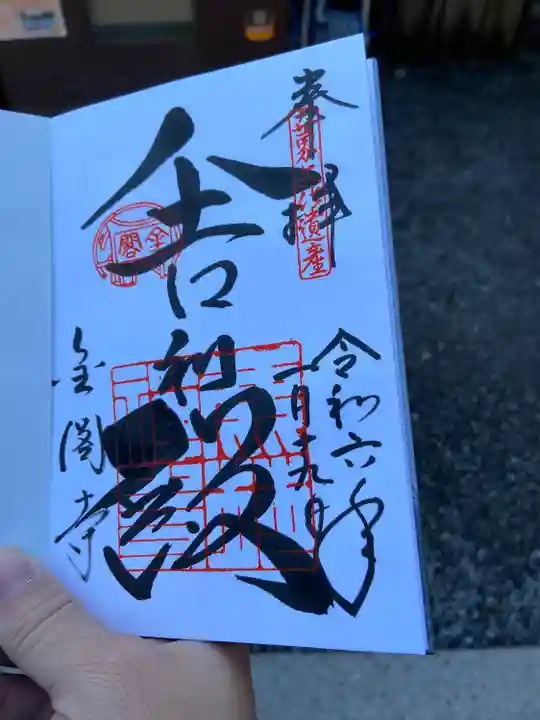 奉拝
世界文化遺産
令和六年
一月十九日
舎利殿
金閣
金閣寺